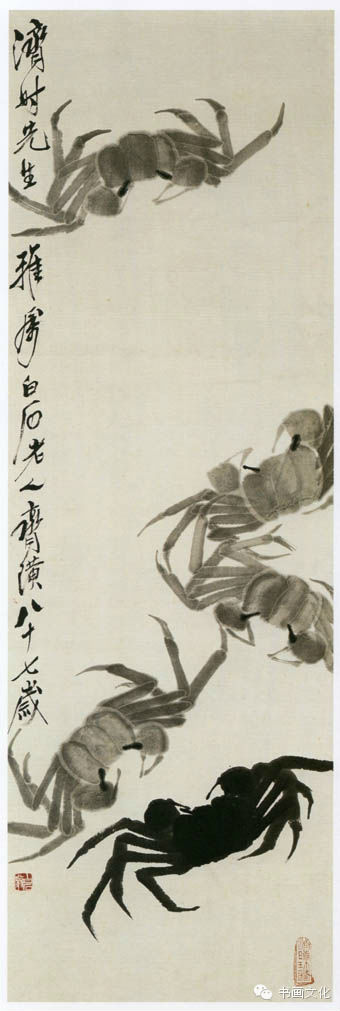 濟時先生 雅屬 白石老人齊璜八十七歲
书画文化